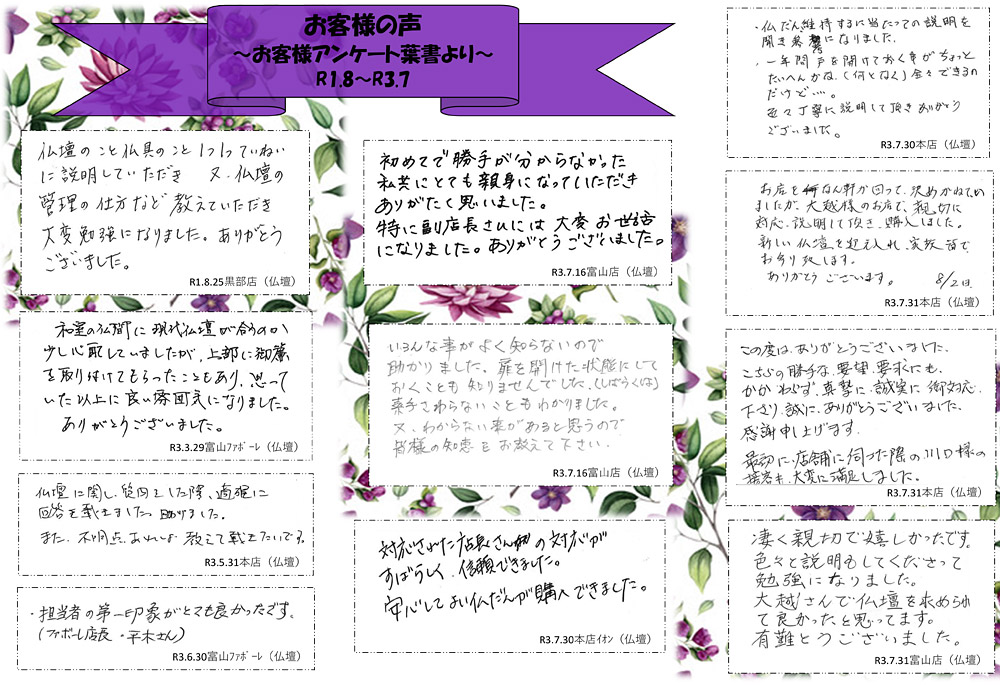 お客様の声
～お客様アンケート葉書より～
R1.8～R3.7
仏壇のこと仏具のこと1つ1つていねい
に説明していただき 又、仏壇の
管理の仕方など教えていただき
大変勉強になりました。ありがとう
ございました。
R1.8.25黒部店（仏壇）
和室の仏間に現代仏壇が合うのか
少し心配していましたが、上部に御簾
を取り付けてもらったこともあり、思って
いた以上に良い雰囲気になりました。
ありがとうございました。
R3.3.29富山ﾌｧﾎﾞｰﾚ（仏壇）
仏壇に関し、質問をした際、適確に
回答を戴きました。助かりました。
また、不明点あれば、教えて戴きたいです。
R3.5.31本店（仏壇）
・担当者の第一印象がとても良かったです。
（ファボーレ店長・平木さん）
R3.6.30富山ﾌｧﾎﾞｰﾚ（仏壇）
初めてで勝手が分からなかった
私共にとても親身になっていただき
ありがたく思いました。
特に副店長さんには大変お世話
になりました。ありがとうございました。
R3.7.16富山店（仏壇）
いろんな事がよく知らないので
助かりました。扉を開けた状態にして
おくことも知りませんでした。（しばらくは）
素手さわらないこともわかりました。
又、わからない事があると思うので
皆様の知恵をお教えて下さい。
R3.7.16富山店（仏壇）
対応された店長さんの対応が
すばらしく、信頼できました。
安心してよい仏だんが購入できました。
R3.7.30本店ｲｵﾝ（仏壇）
・仏だん維持するに当たっての説明を
聞き参考になりました。
・一年間戸を開けておく事がちょっと
たいへんかな。（何となく）全々できるの
だけど…。
色々丁寧に説明して頂きありがとう
ございました。
R3.7.30本店（仏壇）
お店を何なん軒か回って、決めかねてい
ましたが、大越様のお店で、親切に
対応、説明して頂き、購入しました。
新しい仏壇を迎え入れ、家族皆で
お参り致します。
ありがとうございます。 8/2日
R3.7.31本店（仏壇）
この度は、ありがとうございました。
こちらの勝手な、要望、要求にも、
かかわらず、真摯に、誠実に御対応、
下さり、誠に、ありがとうございました。
感謝申し上げます。
最初に、店舗に伺った際の川口様の
接客も、大変に満足しました。
R3.7.31本店（仏壇）
凄く親切で嬉しかったです。
色々と説明もしてくださって
勉強になりました。
大越さんで仏壇を求められ
て良かったと思ってます。
有難とうございました。
R3.7.31富山店（仏壇）